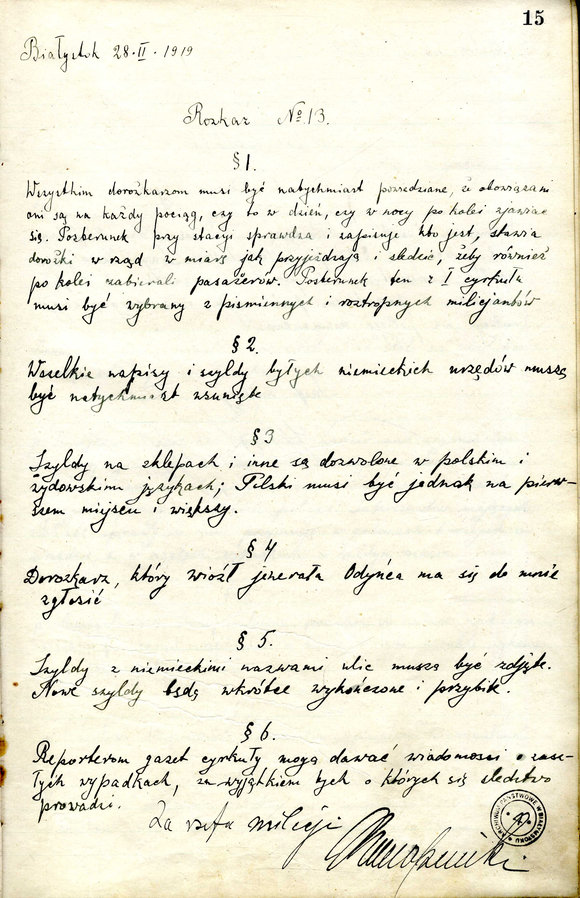 15
Białystok 28·II·1919
Rozkaz No 13.
§ 1.
Wszystkim dorożkarzom musi być natychmiast powiedziane, że obowiązani
oni są na każdy pociąg, czy to w dzień, czy w nocy po kolei zjawiać
się. Posterunek przy stacyi sprawdza i zapisuje kto jest, stawia
dorożki w rząd w miarę jak przyjeżdzają i śledzić, żeby również
po kolei zabierali pasażerów. Posterunek ten z I cyrkułu
musi być wybrany z piśmiennych i roztropnych milicjantów
§ 2.
Wszelkie napisy i szyldy byłych niemieckich urzędów muszą
być natychmiast usunięte
§ 3
Szyldy na sklepach i inne są dozwolone w polskim i
żydowskim językach; Polski musi być jednak na pierw-
szem miejscu i większy.
§ 4
Dorożkarz, który wiózł jenerała Odyńca ma się do mnie
zgłosić
§ 5.
Szyldy z niemieckimi nazwami ulic muszą być zdjęte.
Nowe szyldy będą wkrótce wykończone i przybite.
§ 6.
Reporterom gazet cyrkuły mogą dawać wiadomości o zasz-
łych wypadkach, za wyjątkiem tych o których się śledztwo
prowadzi.
Za szefa milicji
ARCHIWUM PAŃSTWOWE W BIAŁYMSTOKU